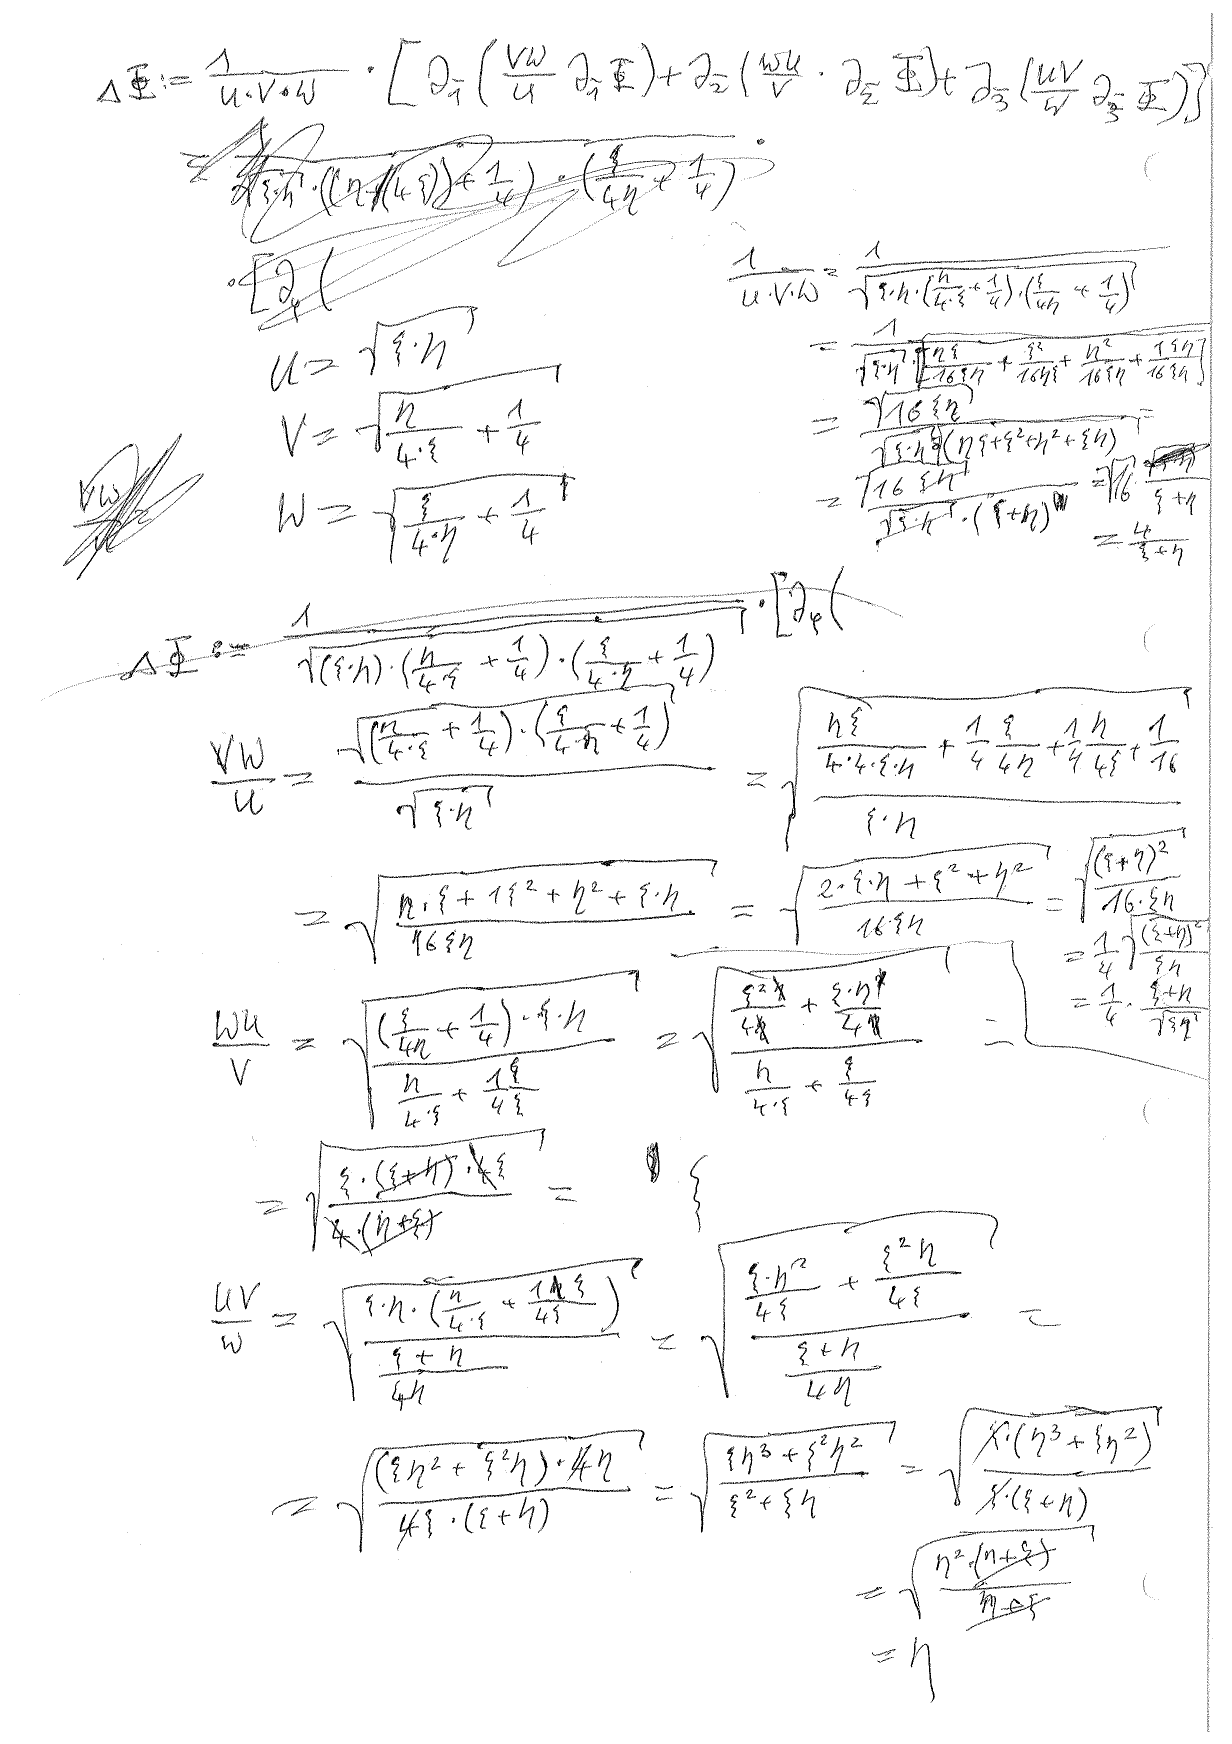 ΔΦ := 1/(u·v·w) · [∂₁(vw/u ∂₁Φ) + ∂₂(wu/v · ∂₂Φ) + ∂₃(uv/w ∂₃Φ)]
·[∂φ(
1/(u·v·w) = 1/√(ξ·η·(η/(4·ξ) + 1/4)·(ξ/(4η) + 1/4))
u = √(ξ·η)
= 1/(√(ξ·η)·√(ηξ/(16ξη) + ξ²/(16ηξ) + η²/(16ξη) + 1ξη/(16ξη)))
v = √(η/(4·ξ) + 1/4)
= √(16ξη)/(√(ξ·η)√(ηξ+ξ²+η²+ξη)) =
w = √(ξ/(4·η) + 1/4)
= √(16ξη)/(√(ξ·η)·(ξ+η)) = √16 · /(ξ+η)
= 4/(ξ+η)
vw
ΔΦ := 1/√((ξ·η)·(η/(4·ξ) + 1/4)·(ξ/(4·η) + 1/4)) · [∂φ(
vw/u = √((η/(4·ξ) + 1/4)·(ξ/(4·η) + 1/4))/√(ξ·η) = √((ηξ/(4·4·ξ·η) + 1/4 ξ/(4η) + 1/4 η/(4ξ) + 1/16)/(ξ·η))
= √((η·ξ + 1ξ² + η² + ξ·η)/(16ξη)) = √((2·ξ·η + ξ² + η²)/(16ξη)) = √((ξ+η)²/(16·ξη))
= 1/4 √((ξ+η)²/(ξη))
= 1/4 · (ξ+η)/√(ξη)
wu/v = √(((ξ/(4η) + 1/4)·ξ·η)/(η/(4·ξ) + 1ξ/(4ξ))) = √((ξ²η/(4η) + ξ·η/4)/(η/(4·ξ) + ξ/(4ξ))) =
= √((ξ·(ξ+η)·4ξ)/(4·(η+ξ))) = ξ
uv/w = √((ξ·η·(η/(4·ξ) + 1ξ/(4ξ)))/((ξ+η)/(4η))) = √((ξ·η²/(4ξ) + ξ²η/(4ξ))/((ξ+η)/(4η))) =
= √(((ξη² + ξ²η)·4η)/(4ξ·(ξ+η))) = √((ξη³ + ξ²η²)/(ξ² + ξη)) = √((ξ·(η³ + ξη²))/(ξ·(ξ+η)))
= √((η²·(η+ξ))/(η+ξ))
= η